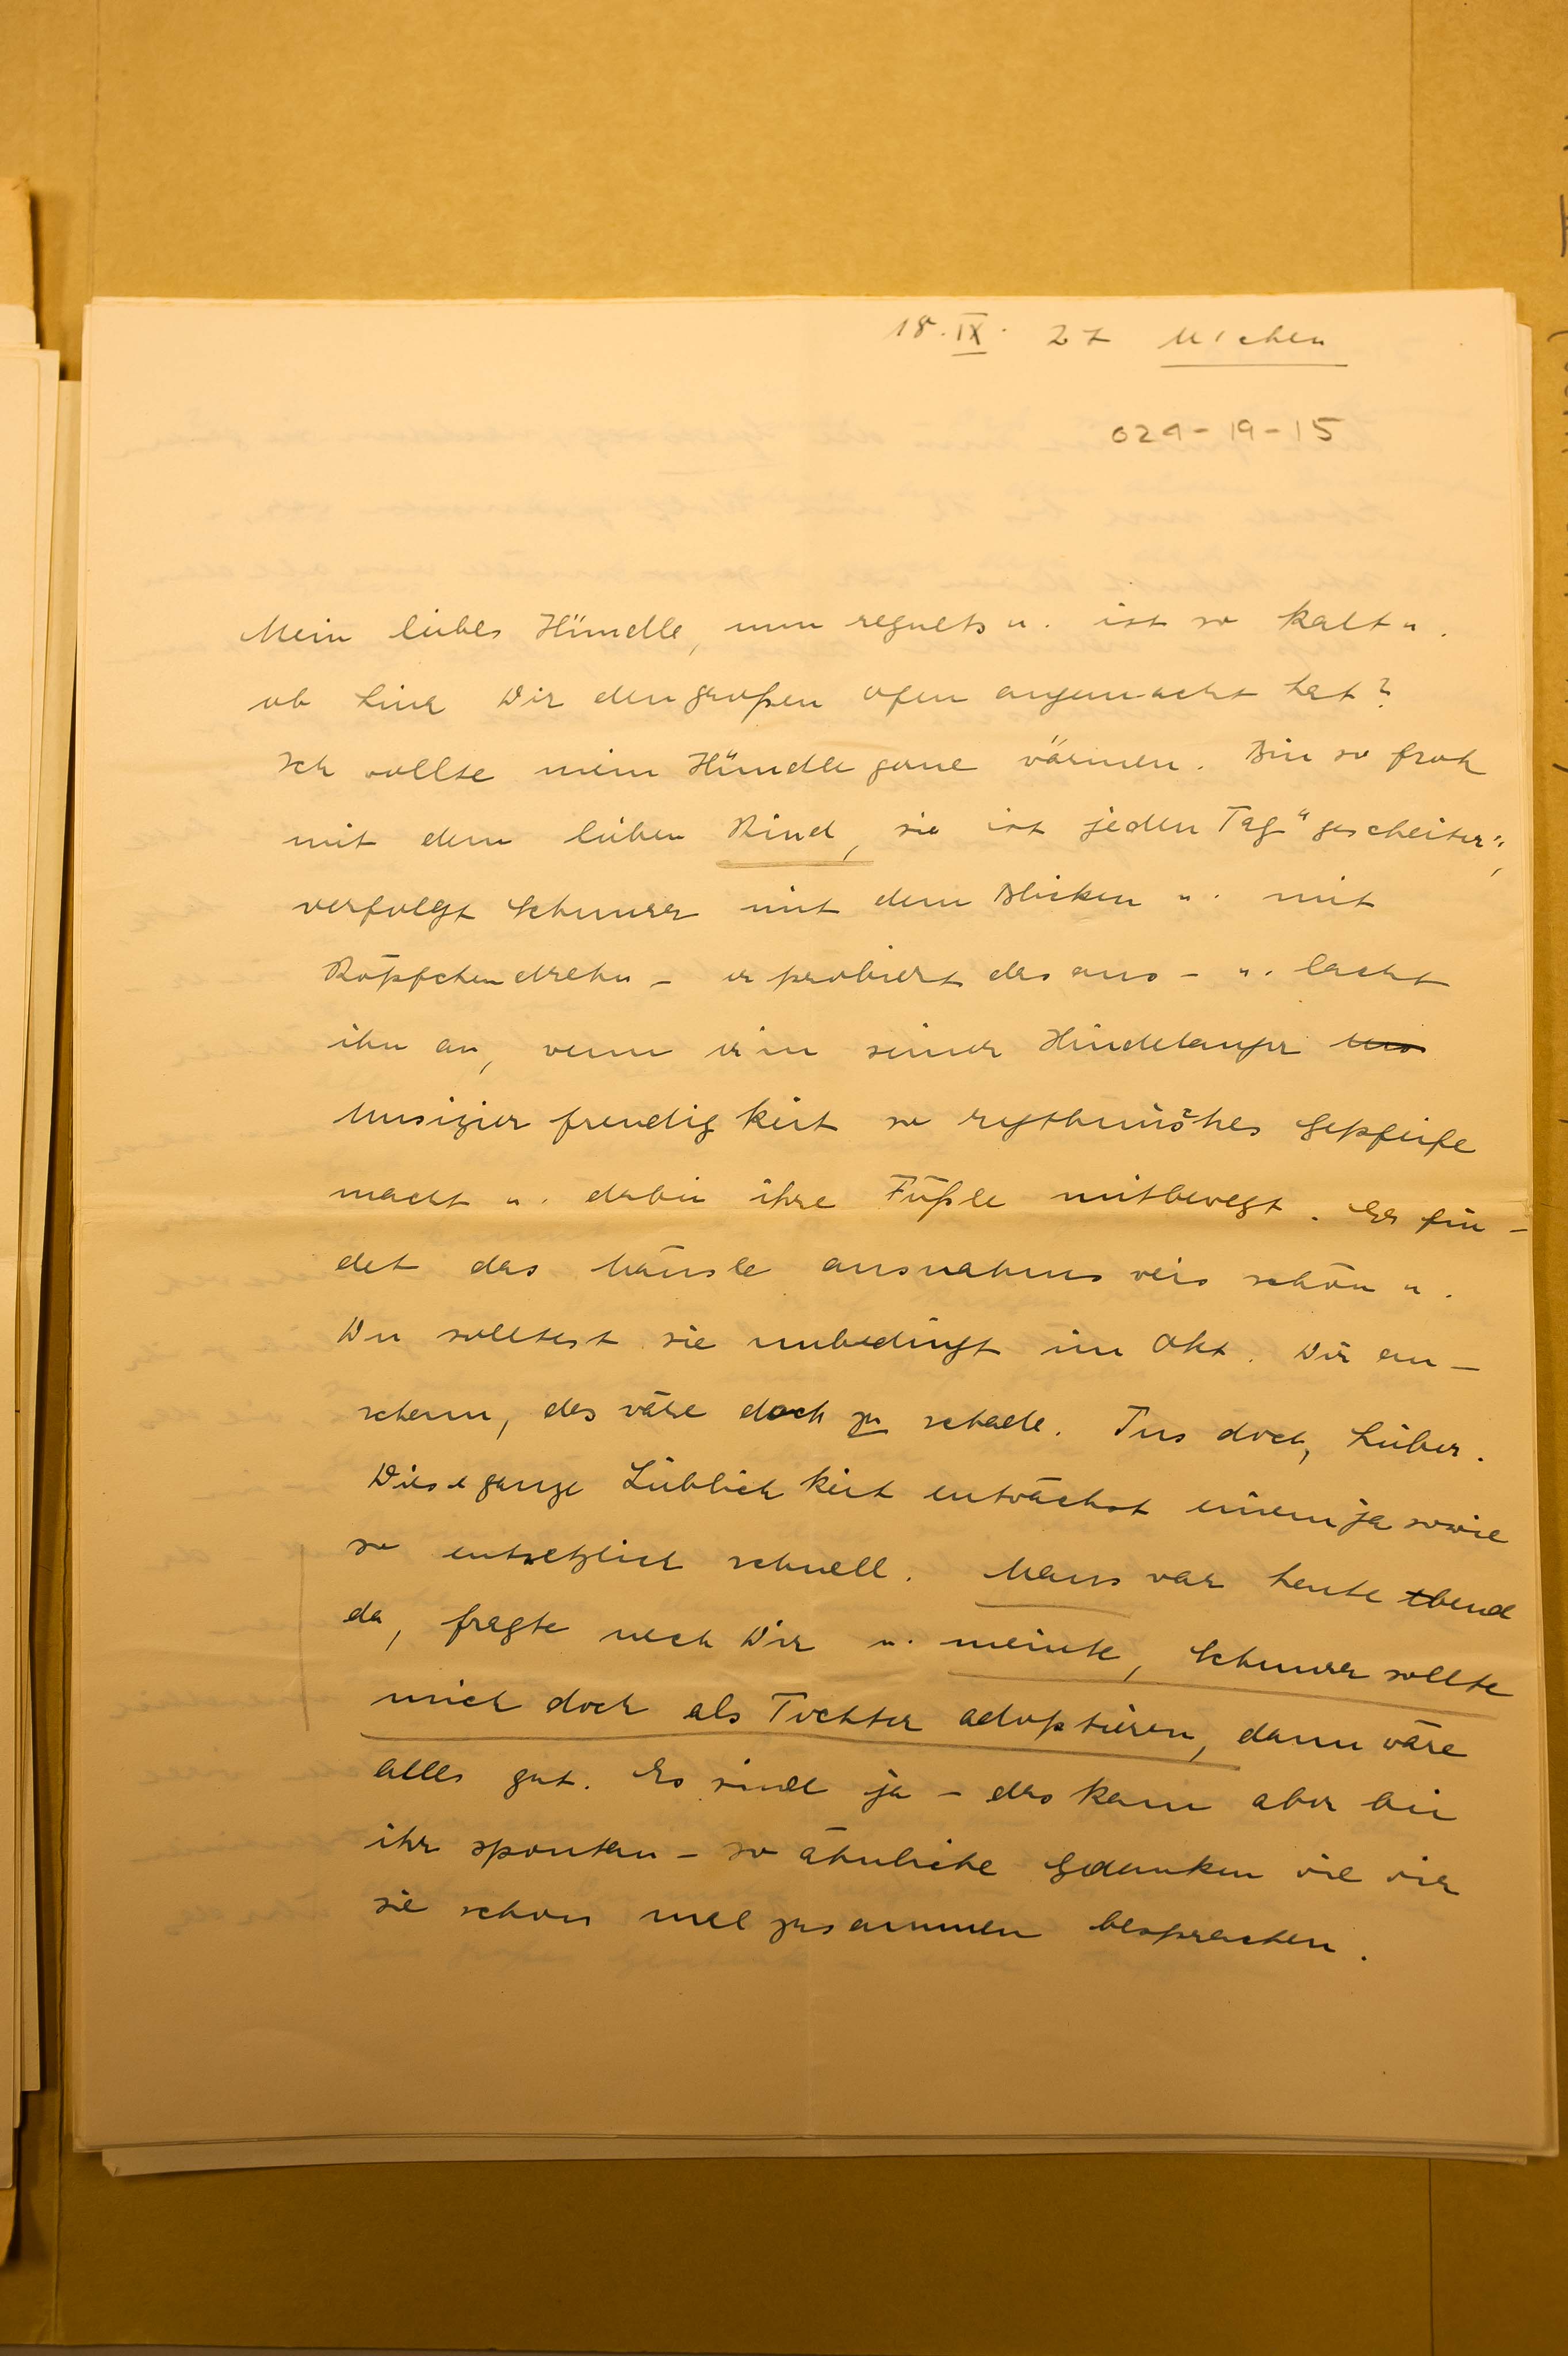 18. IX. 27 M'chen
029-19-15
Mein liebes Hündle, nun regnets u. ist so kalt u.
ob Line Dir den großen Ofen angemacht hat?
Ich wollte mein Hündle gerne wärmen. Bin so froh
mit dem lieben Kind, sie ist jeden Tag "gescheiter",
verfolgt Schnurr mit dem Blicken u. mit
Köpfchendrehn - er probiert das aus - u. lacht
ihn an, wenn er in seiner
Musizierfreudigkeit so rythmisches Gepfeife
macht u. dabei ihre Füßle mitbewegt. Er fin-
det das Mäusle ausnahmsweis schön u.
Du solltest sie unbedingt im Okt. Dir an-
schaun, das wäre doch zu schade. Tus doch, Lieber.
Diese ganze Lieblichkeit entwächst einem ja sowie
so entsetzlich schnell. Maus war heute Abend
da, fragte nach Dir u. meinte, Schnurr sollte
mich doch als Tochter adoptieren, dann wäre
alles gut. Es sind ja - das kam aber bei
ihr spontan - so ähnliche Gedanken wie wir
sie schon mal zusammen besprachen.